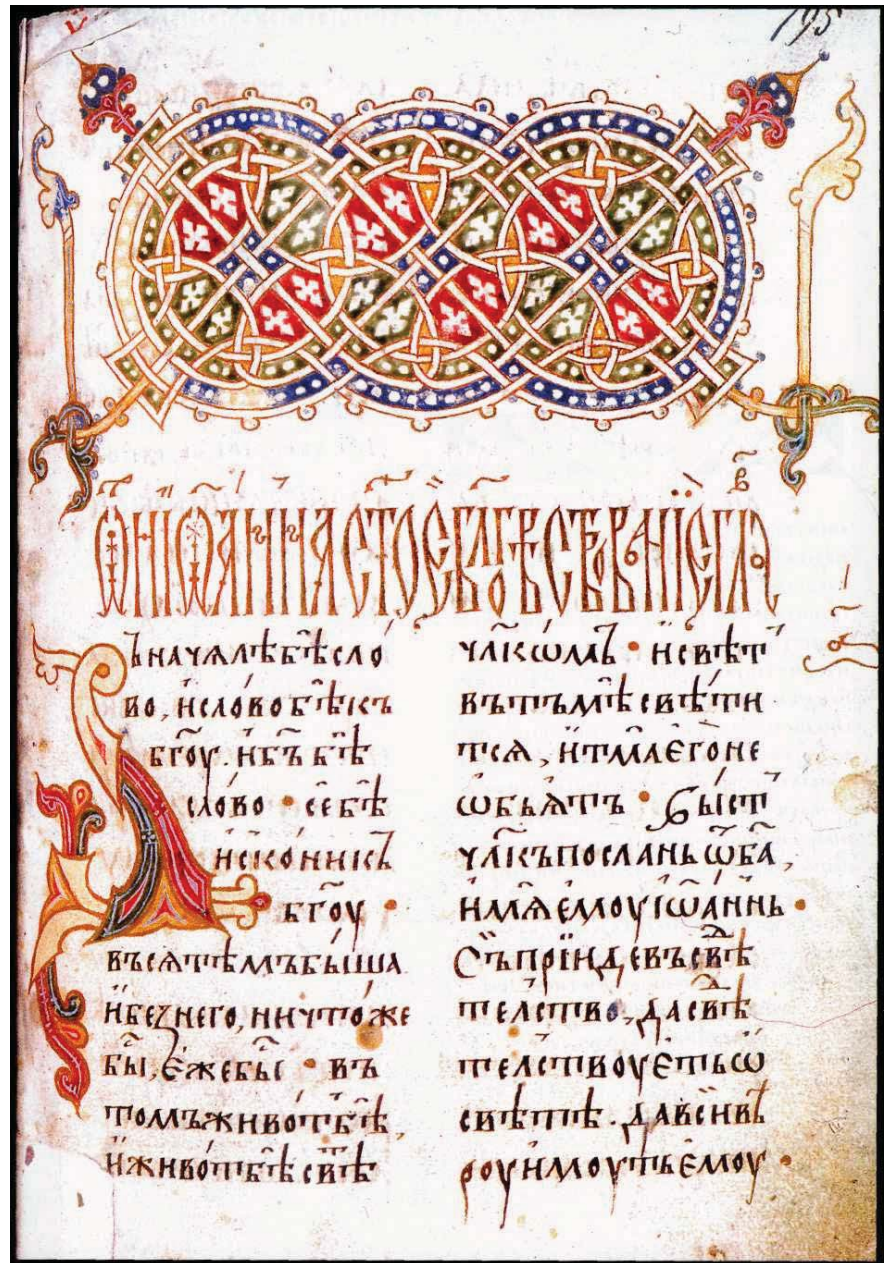 195
Ѿ ІѠАННА СТ҃ОЕ БЛ҃ГОВѢСТВОВАНЇЕ ГЛ҃
Ъначѧлѣ бѣ̀ сло́
во, и҆ сло́во бѣ̀ къ
бг҃оу. и҆ бъ҃ бѣ̀
сло́во • се бѣ̀
и҆ско́ни къ
бг҃оу •
въсѧ тѣмъ бы́ша
и҆ беꙁ него, ничто́же
бы̑, є҆же бы̑с • въ
томъ живо́т бѣ̀,
и҆ живо́т бѣ̀ свѣ̑
чл҃кѡмь • и҆ свѣ́т
въ тъмѣ свѣ́ти
тсѧ, и҆ тма̀ є҆го не
ѡ҆бьѧ́тъ • Бы́ст
чл҃къ послань ѿ ба҃,
и҆мѧ є҆моу і҆ѡа́ннь •
Съ прїи́де въ свѣ̑
телство, да свѣ̑
телствоуеть ѡ҆
свѣ́тѣ. да вси вѣ̑
роу и҆моуть є҆моу •